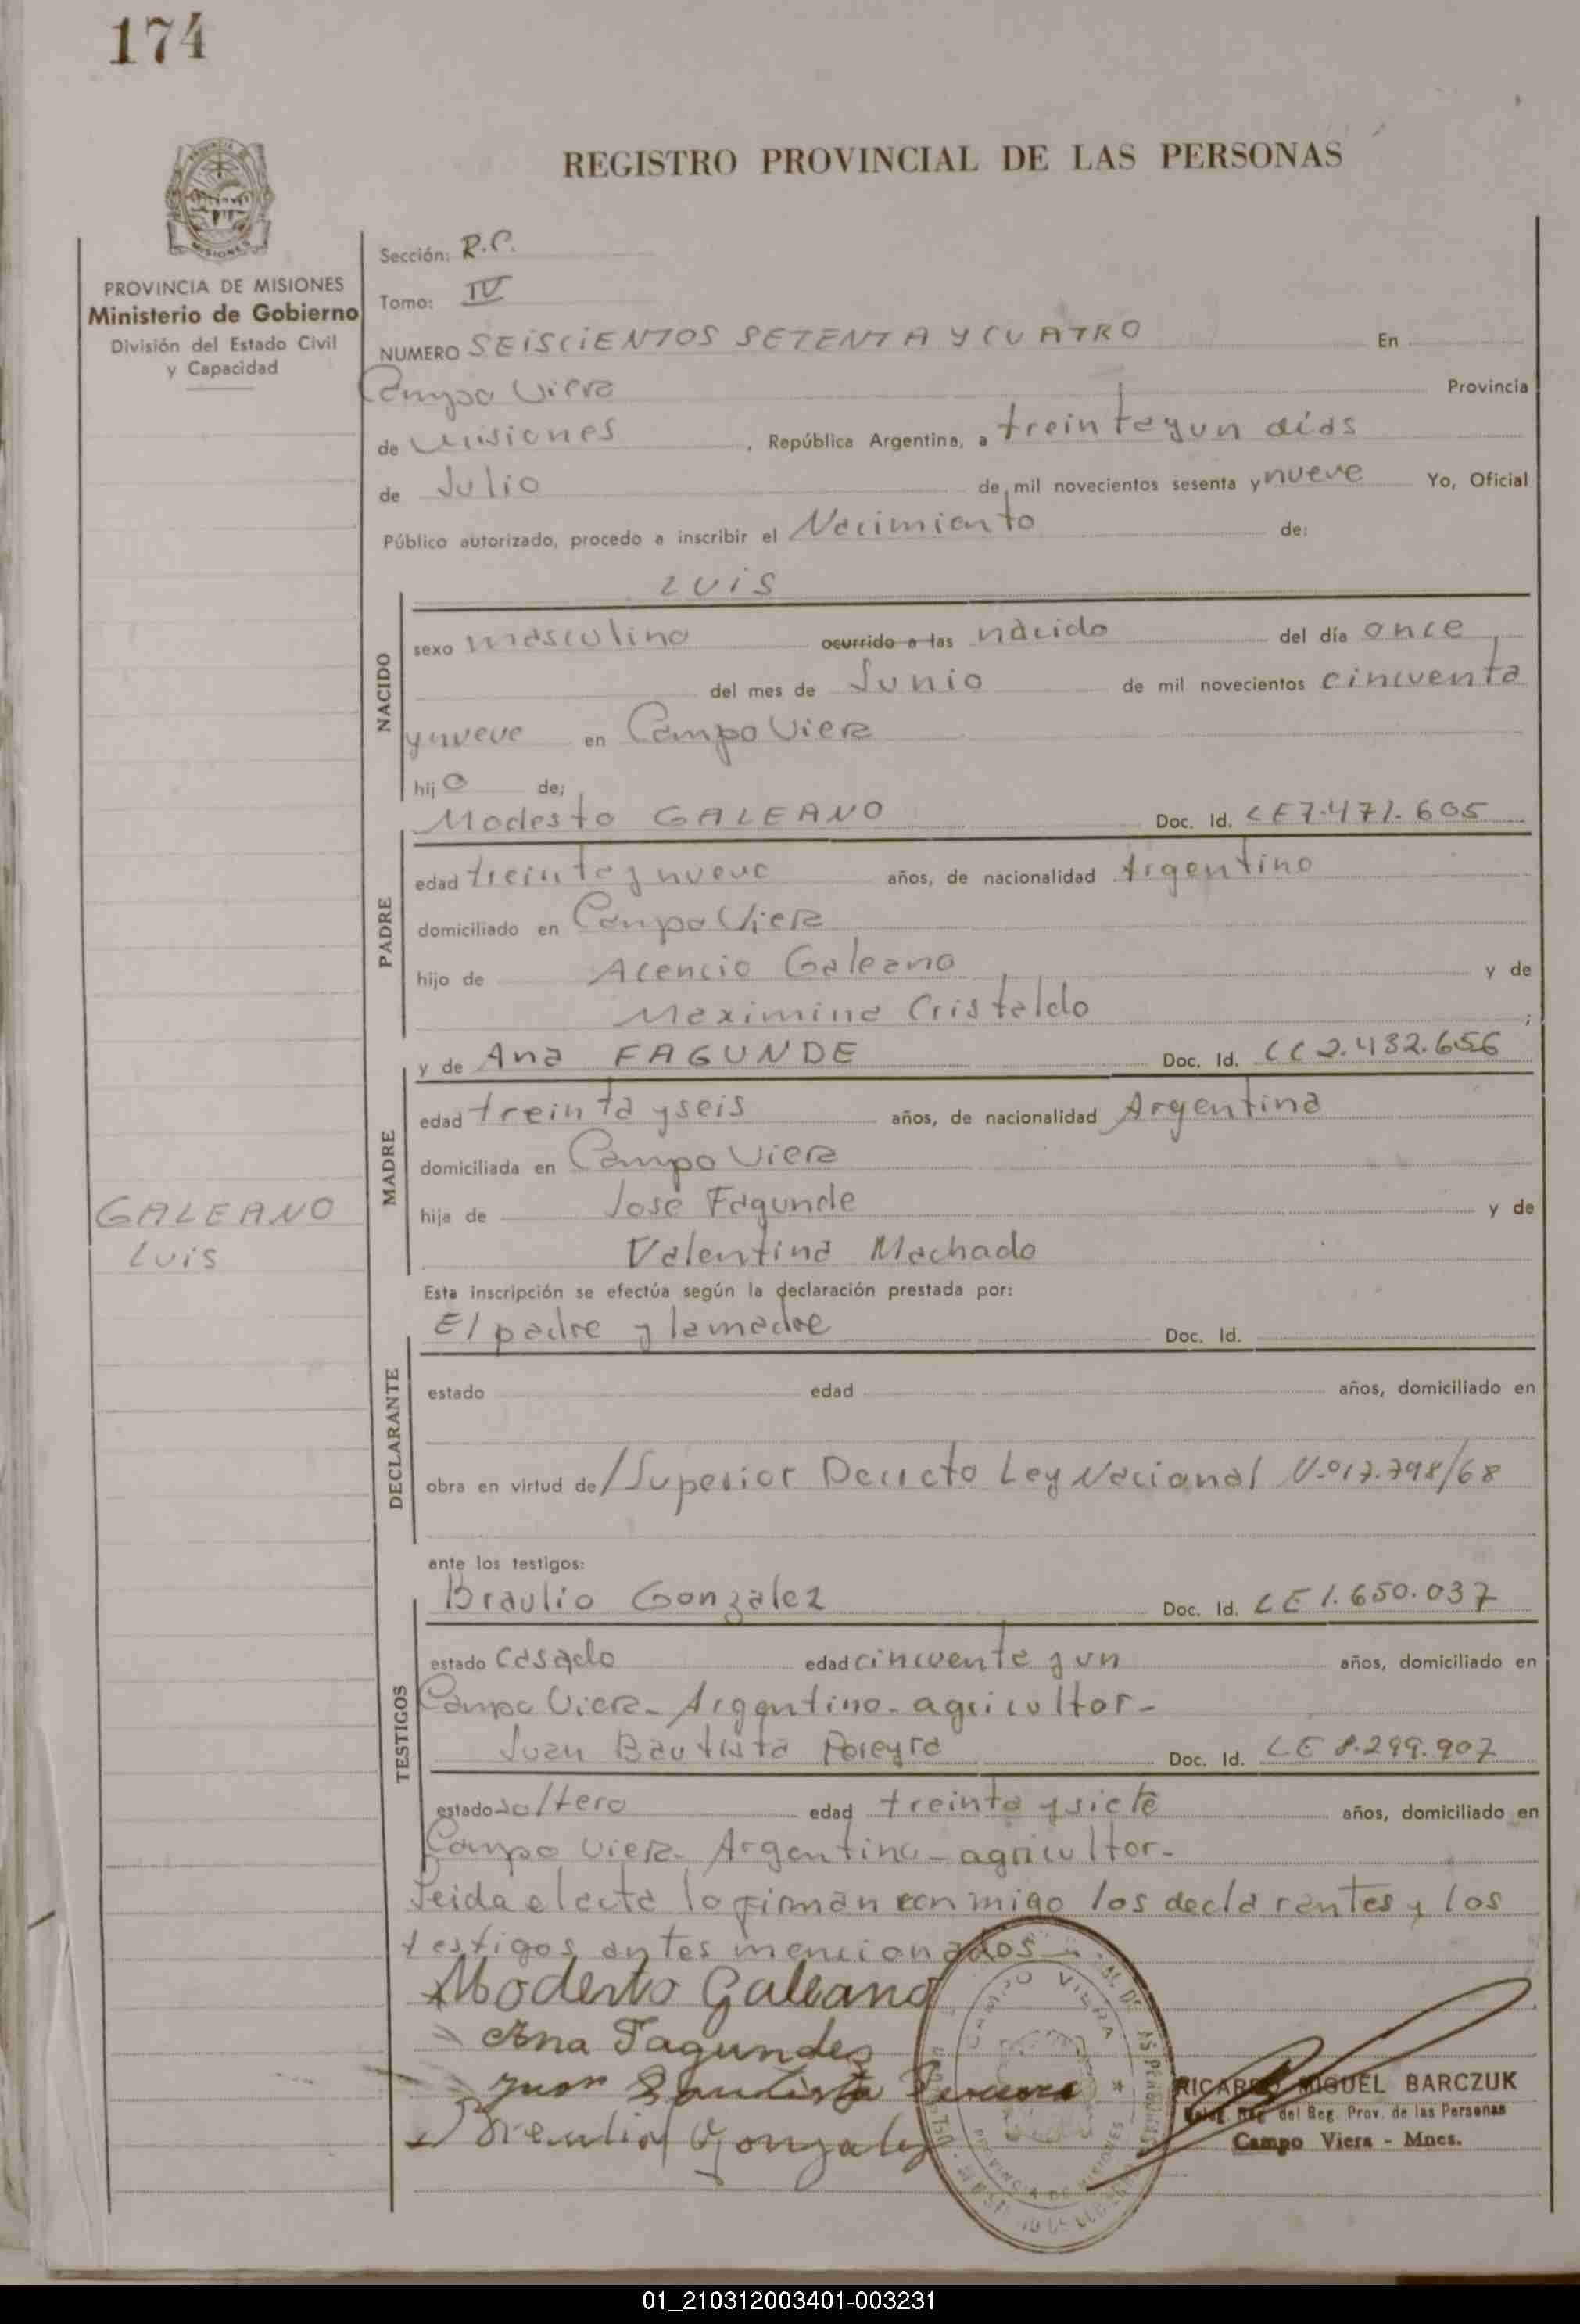 174
REGISTRO PROVINCIAL DE LAS PERSONAS
PROVINCIA DE MISIONES
Ministerio de Gobierno
División del Estado Civil
y Capacidad
Sección: R.C.
Tomo: IV
NUMERO SEISCIENTOS SETENTA Y CUATRO En
Campo Viera Provincia
de Misiones, República Argentina, a treinta y un días
de Julio de mil novecientos sesenta y nueve Yo, Oficial
Público autorizado, procedo a inscribir el Nacimiento de:
LUIS
NACIDO
sexo masculino ocurrido a las nacido del día once
del mes de Junio de mil novecientos cincuenta
y nueve en Campo Viera
hijo de:
Modesto GALEANO Doc. Id. LE 7.471.605
PADRE
edad treinta y nueve años, de nacionalidad Argentino
domiciliado en Campo Viera
hijo de Acencio Galeano y de
Maximina Cristaldo;
y de Ana FAGUNDE Doc. Id. LC 2.432.656
MADRE
edad treinta y seis años, de nacionalidad Argentina
domiciliada en Campo Viera
hija de José Fagunde y de
Valentina Machado
GALEANO
Luis
Esta inscripción se efectúa según la declaración prestada por:
El padre y la madre Doc. Id.
DECLARANTE
estado edad años, domiciliado en
obra en virtud de /Superior Decreto Ley Nacional N.o 17.798/68
ante los testigos:
Braulio Gonzalez Doc. Id. LE 1.650.037
TESTIGOS
estado casado edad cincuenta y un años, domiciliado en
Campo Viera - Argentino - agricultor -
Juan Bautista Pereyra Doc. Id. LE 8.299.907
estado soltero edad treinta y siete años, domiciliado en
Campo Viera - Argentino - agricultor -
Leida el acta la firman conmigo los declarantes y los
testigos antes mencionados -
Modesto Galeano
Ana Fagundes
Juan Bautista
Braulio Gonzalez
CAMPO VIERA
PROVINCIA DE MISIONES
RICARDO MIGUEL BARCZUK
del Reg. Prov. de las Personas
Campo Viera - Mnes.
01_210312003401-003231